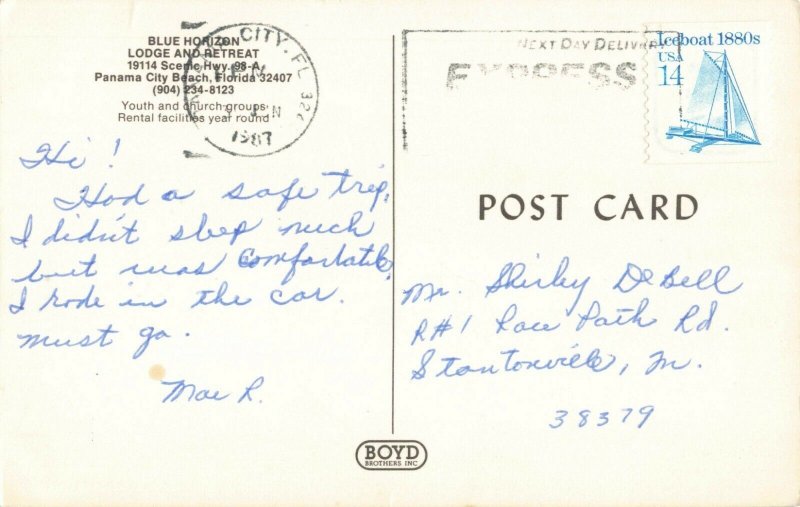 BLUE HORIZON
LODGE AND RETREAT
19114 Scenic Hwy. 98-A
Panama City Beach, Florida 32407
(904) 234-8123
Youth and church groups
Rental facilities year round
CITY, FL
JUN
1987
NEXT DAY DELIVERY
EXPRESS
Iceboat 1880s
USA
14
Hi!
Had a safe trip,
I didn't sleep much
but was comfortable,
I rode in the car.
must go.
Mae R.
POST CARD
Mr. Shirley DeBell
R#1 Race Path Rd.
Stantonville, Tn.
38379
BOYD
BROTHERS INC